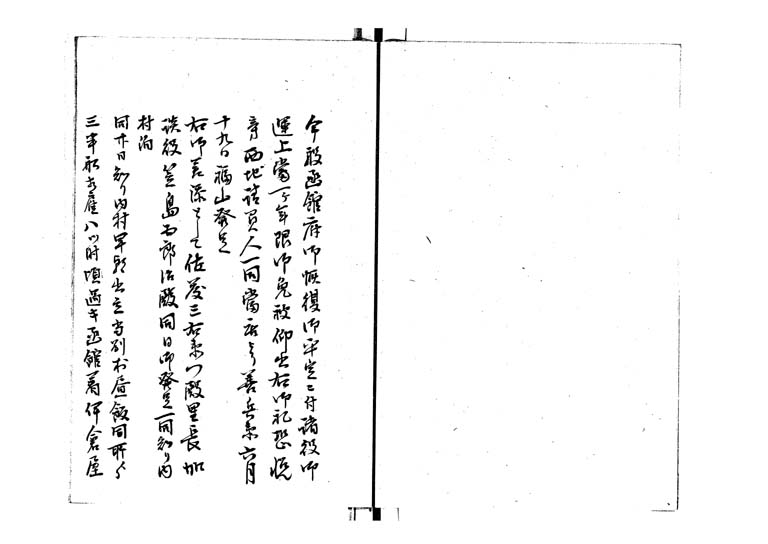 今般函館府御恢復御平定ニ付諸役御
運上當一ケ年限御免被仰出右御礼恐悦
旁西地請負人一同當店ゟ善兵衛六月
十九日福山発足
右御差添として佐藤三右衛門殿里長加
談役笠島右郎治殿同日御発足一同知り内
村泊
同廿日知り内村早朝出立当別村昼飯同所ゟ
三半船出雇八ツ時頃過キ函館着伊倉屋